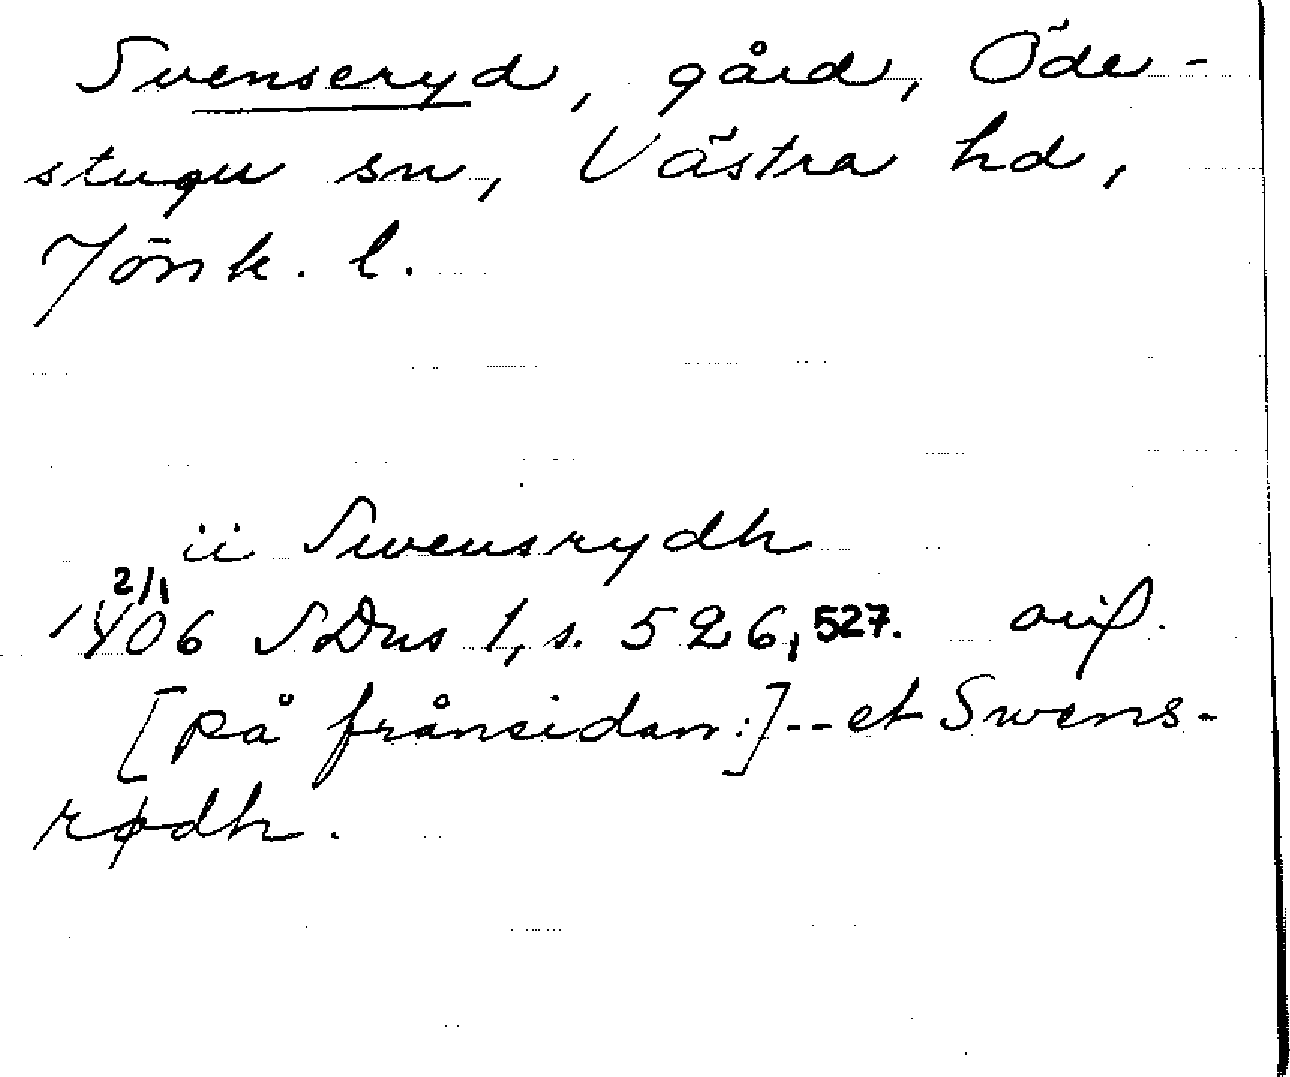 Svenseryd, gård, Öde-
stugu sn, Västra hd,
Jönk. l.
ii Swensrydh
2/1
1406 SDns 1, s. 526, 527. or.
[på frånsidan:] -- et Swens-
rødh.